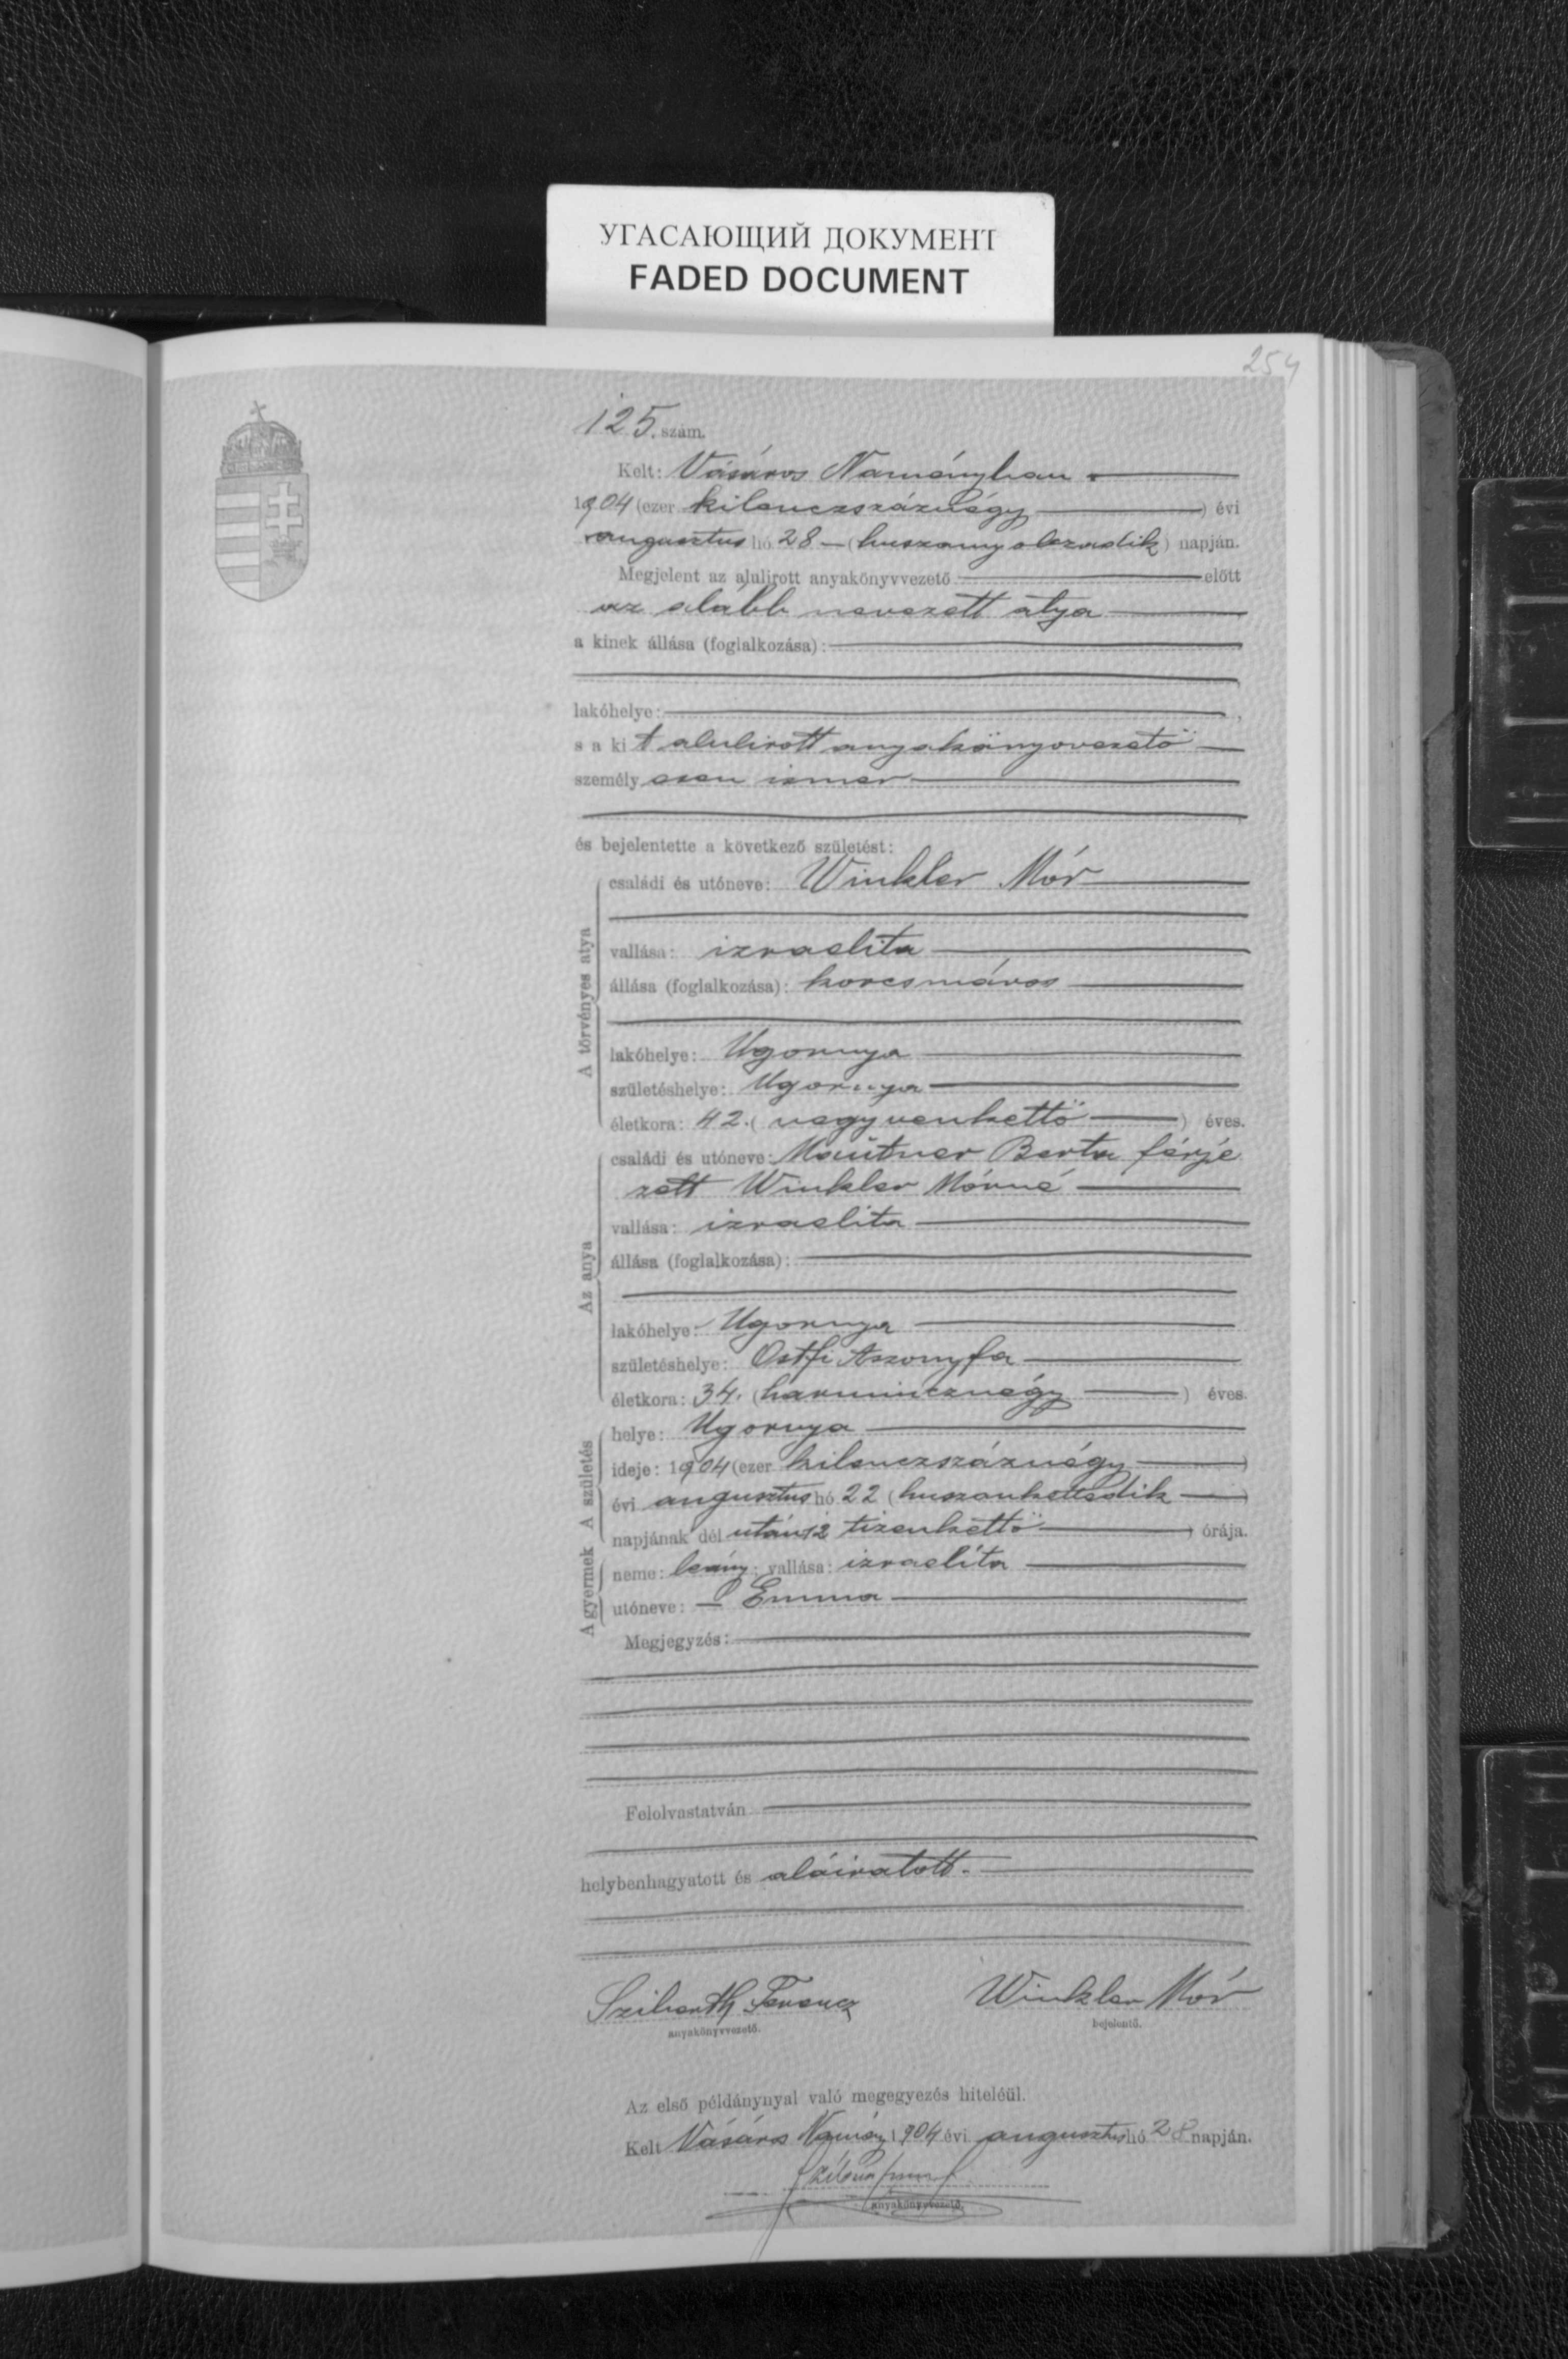 УГАСАЮЩИЙ ДОКУМЕНТ
FADED DOCUMENT
254
125. szám.
Kelt: Vásáros Naményban
1904 (ezer kilenczszáznégy) évi
augusztus hó 28 (huszonnyolczadik) napján.
Megjelent az alulirott anyakönyvvezető előtt
az alább nevezett atya
a kinek állása (foglalkozása):
lakóhelye:
s a kit alulirott anyakönyvvezető
személyesen ismer
és bejelentette a következő születést:
A törvényes atya
családi és utóneve: Winkler Mór
vallása: izraelita
állása (foglalkozása): korcsmáros
lakóhelye: Ugornya
születéshelye: Ugornya
életkora: 42. (negyvenkettő) éves.
Az anya
családi és utóneve: Mautner Berta férje
zett Winkler Mórné
vallása: izraelita
állása (foglalkozása):
lakóhelye: Ugornya
születéshelye: Ostfi Aszonyfa
életkora: 34. (harmincznégy) éves.
A születés
helye: Ugornya
ideje: 1904 (ezer kilenczszáznégy)
évi augusztus hó 22 (huszonkettedik)
napjának dél után 12 tizenkettő órája.
A gyermek
neme: leány; vallása: izraelita
utóneve: Emma
Megjegyzés:
Felolvastatván
helybenhagyatott és aláiratott.
Ferencz Winkler Mór
anyakönyvvezető. bejelentő.
Az első példánynyal való megegyezés hiteléül.
Kelt Vásáros Namény 1904 évi augusztus hó 28 napján.
anyakönyvvezető.